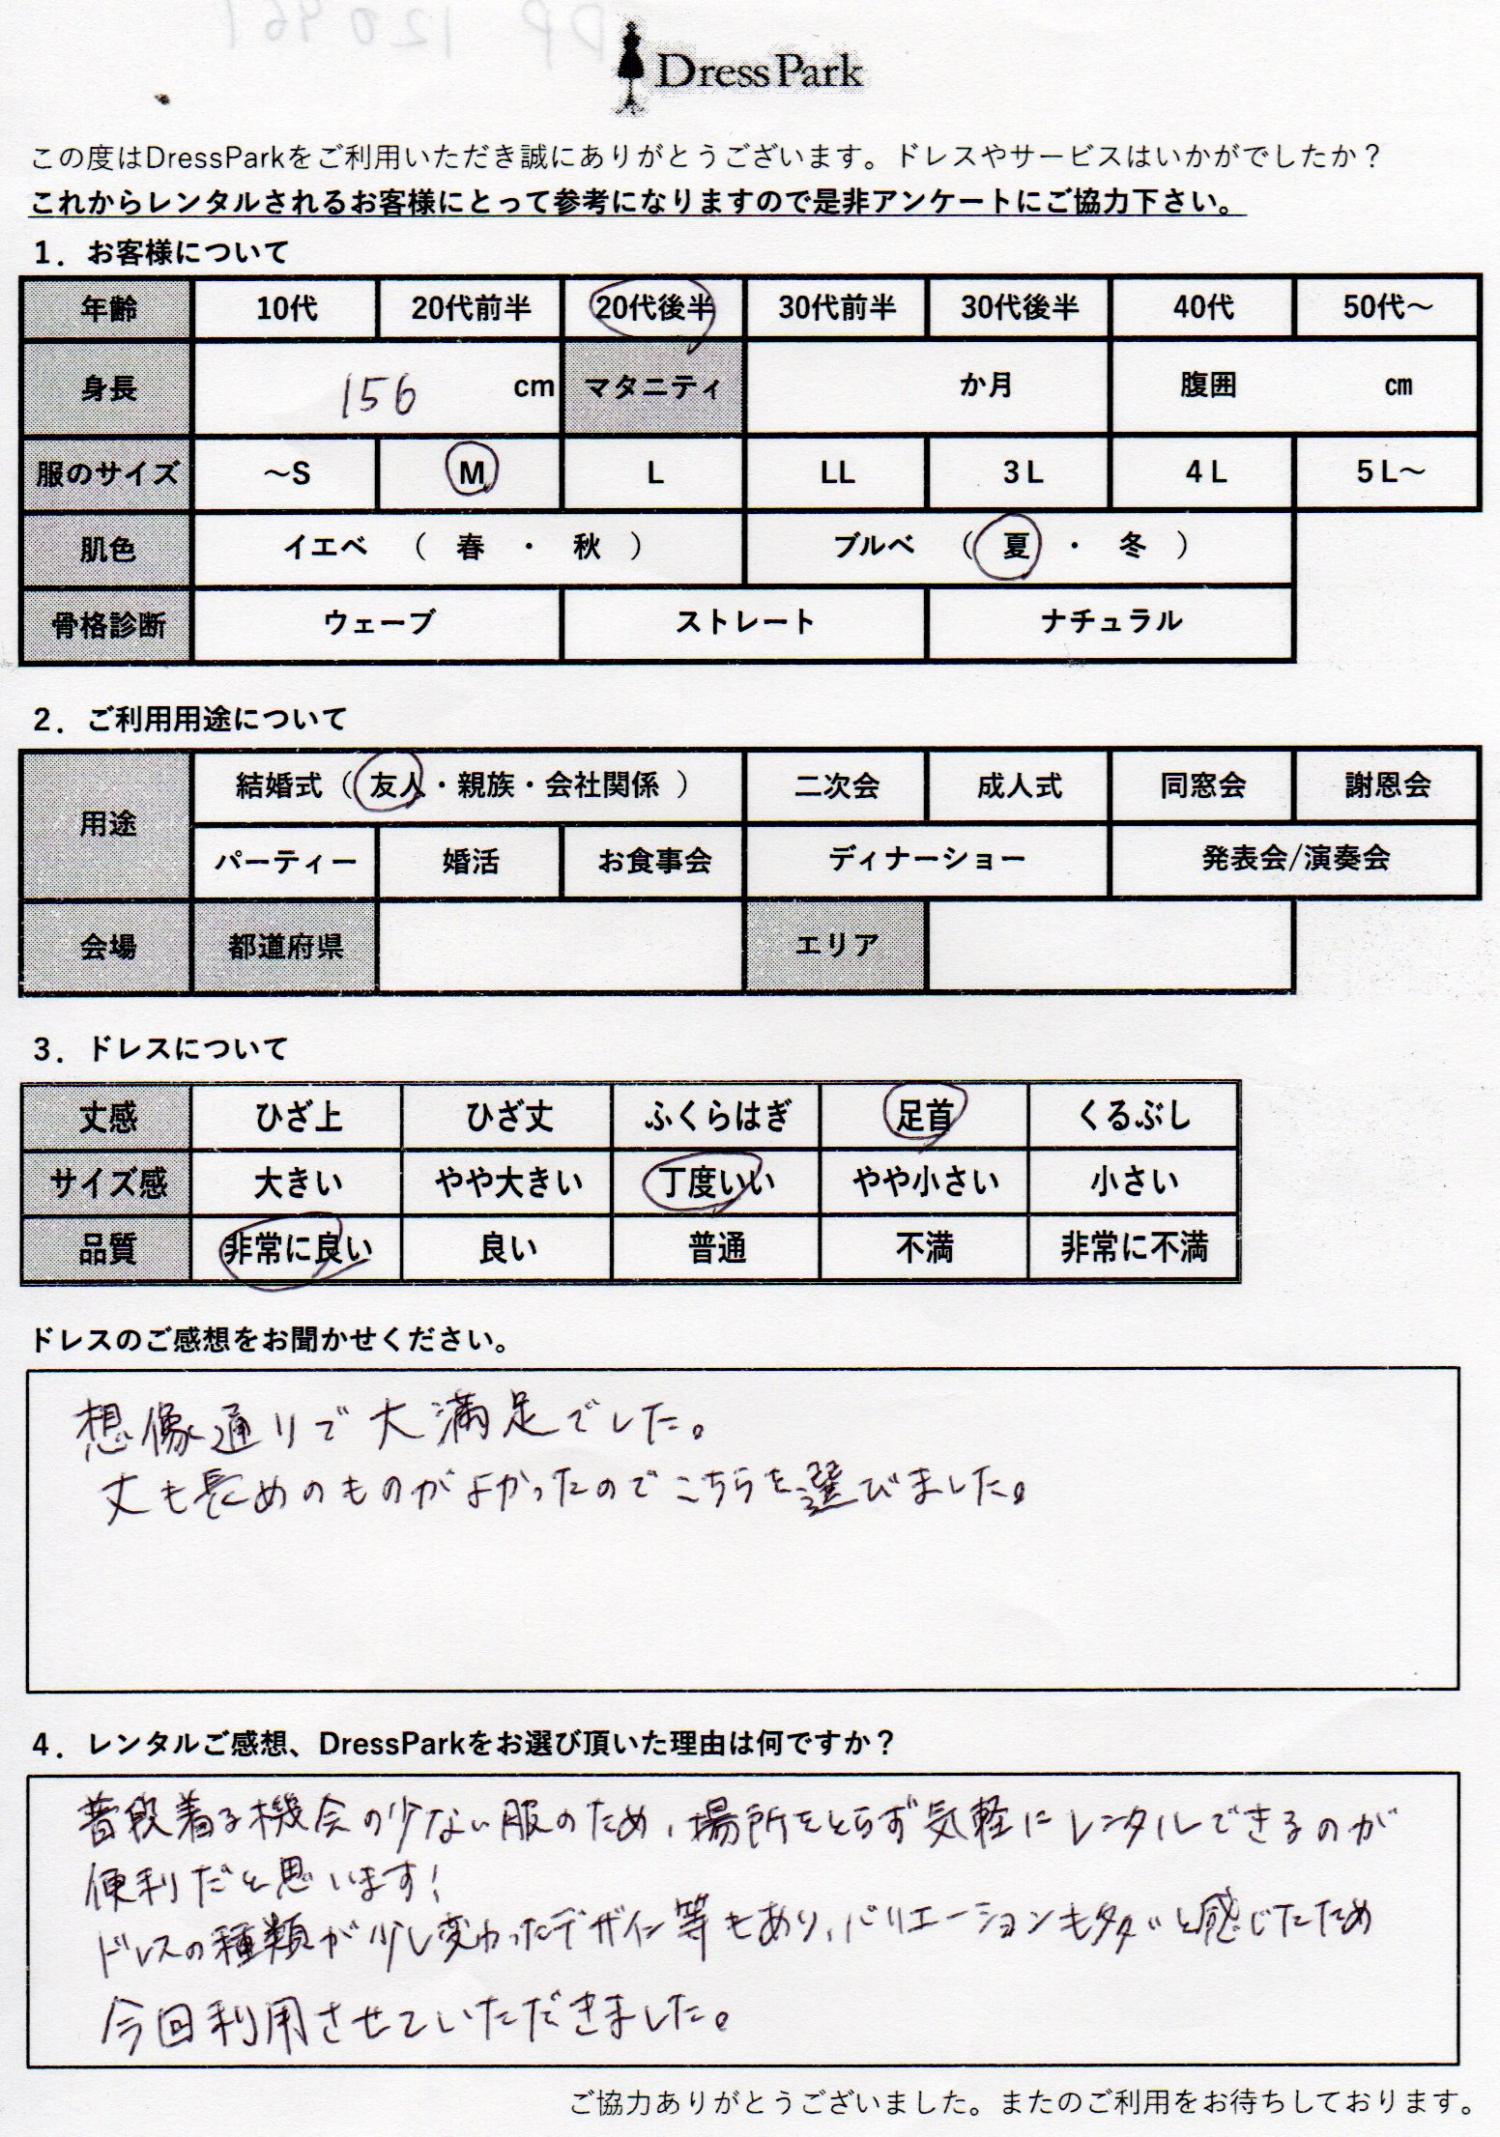 DressPark
この度はDressParkをご利用いただき誠にありがとうございます。ドレスやサービスはいかがでしたか？
これからレンタルされるお客様にとって参考になりますので是非アンケートにご協力下さい。
1．お客様について
年齢 10代 20代前半 20代後半 30代前半 30代後半 40代 50代～
身長 156 cm マタニティ か月 腹囲 ㎝
服のサイズ ～S M L LL 3L 4L 5L～
肌色 イエベ （ 春 ・ 秋 ） ブルベ （ 夏 ・ 冬 ）
骨格診断 ウェーブ ストレート ナチュラル
2．ご利用用途について
用途 結婚式（ 友人・親族・会社関係 ） 二次会 成人式 同窓会 謝恩会
パーティー 婚活 お食事会 ディナーショー 発表会/演奏会
会場 都道府県 エリア
3．ドレスについて
丈感 ひざ上 ひざ丈 ふくらはぎ 足首 くるぶし
サイズ感 大きい やや大きい 丁度いい やや小さい 小さい
品質 非常に良い 良い 普通 不満 非常に不満
ドレスのご感想をお聞かせください。
想像通りで大満足でした。
丈も長めのものがよかったのでこちらを選びました。
4．レンタルご感想、DressParkをお選び頂いた理由は何ですか？
普段着る機会の少ない服のため、場所をとらず気軽にレンタルできるのが
便利だと思います!
ドレスの種類が少し変わったデザイン等もあり、バリエーションも多いと感じたため
今回利用させていただきました。
ご協力ありがとうございました。またのご利用をお待ちしております。